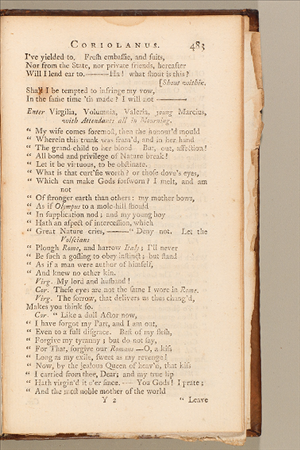 CORIOLANUS. 483
I've yielded to. Fresh embassie, and suits,
Nor from the State, nor private friends, hereafter
Will I lend ear to.———Ha! what shout is this?
[Shout within.
Shall I be tempted to infringe my vow,
In the same time 'tis made? I will not ———
Enter Virgilia, Volumnia, Valeria, young Marcius,
with Attendants all in Mourning.
“ My wife comes foremost, then the honour'd mould
“ Wherein this trunk was fram'd, and in her hand
“ The grand child to her blood. But, out, affection!
“ All bond and privilege of Nature break!
“ Let it be virtuous, to be obstinate.
“ What is that curt'sie worth? or those dove's eyes,
“ Which can make Gods forsworn? I melt, and am
not
“ Of stronger earth than others: my mother bows,
“ As if Olympus to a mole-hill should
“ In supplication nod; and my young boy
“ Hath an aspect of intercession, which
“ Great Nature cries,———“ Deny not. Let the
Volscians
“ Plough Rome, and harrow Italy; I'll never
“ Be such a gosling to obey instinct; but stand
“ As if a man were author of himself,
“ And knew no other kin.
Virg. My lord and husband!
Cor. These eyes are not the same I wore in Rome.
Virg. The sorrow, that delivers us thus chang'd,
Makes you think so.
Cor. “ Like a dull Actor now,
“ I have forgot my Part, and I am out,
“ Even to a full disgrace. Best of my flesh,
“ Forgive my tyranny; but do not say,
“ For That, forgive our Romans.—O, a kiss
“ Long as my exile, sweet as my revenge!
“ Now, by the jealous Queen of heav'n, that kiss
“ I carried from thee, Dear; and my true lip
“ Hath virgin'd it e'er since.--- You Gods! I prate;
“ And the most noble mother of the world
Y 2 “ Leave